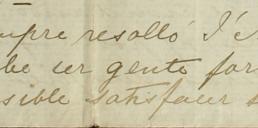 mpre resolló I'e
be ser gente for
sible satisfacer s